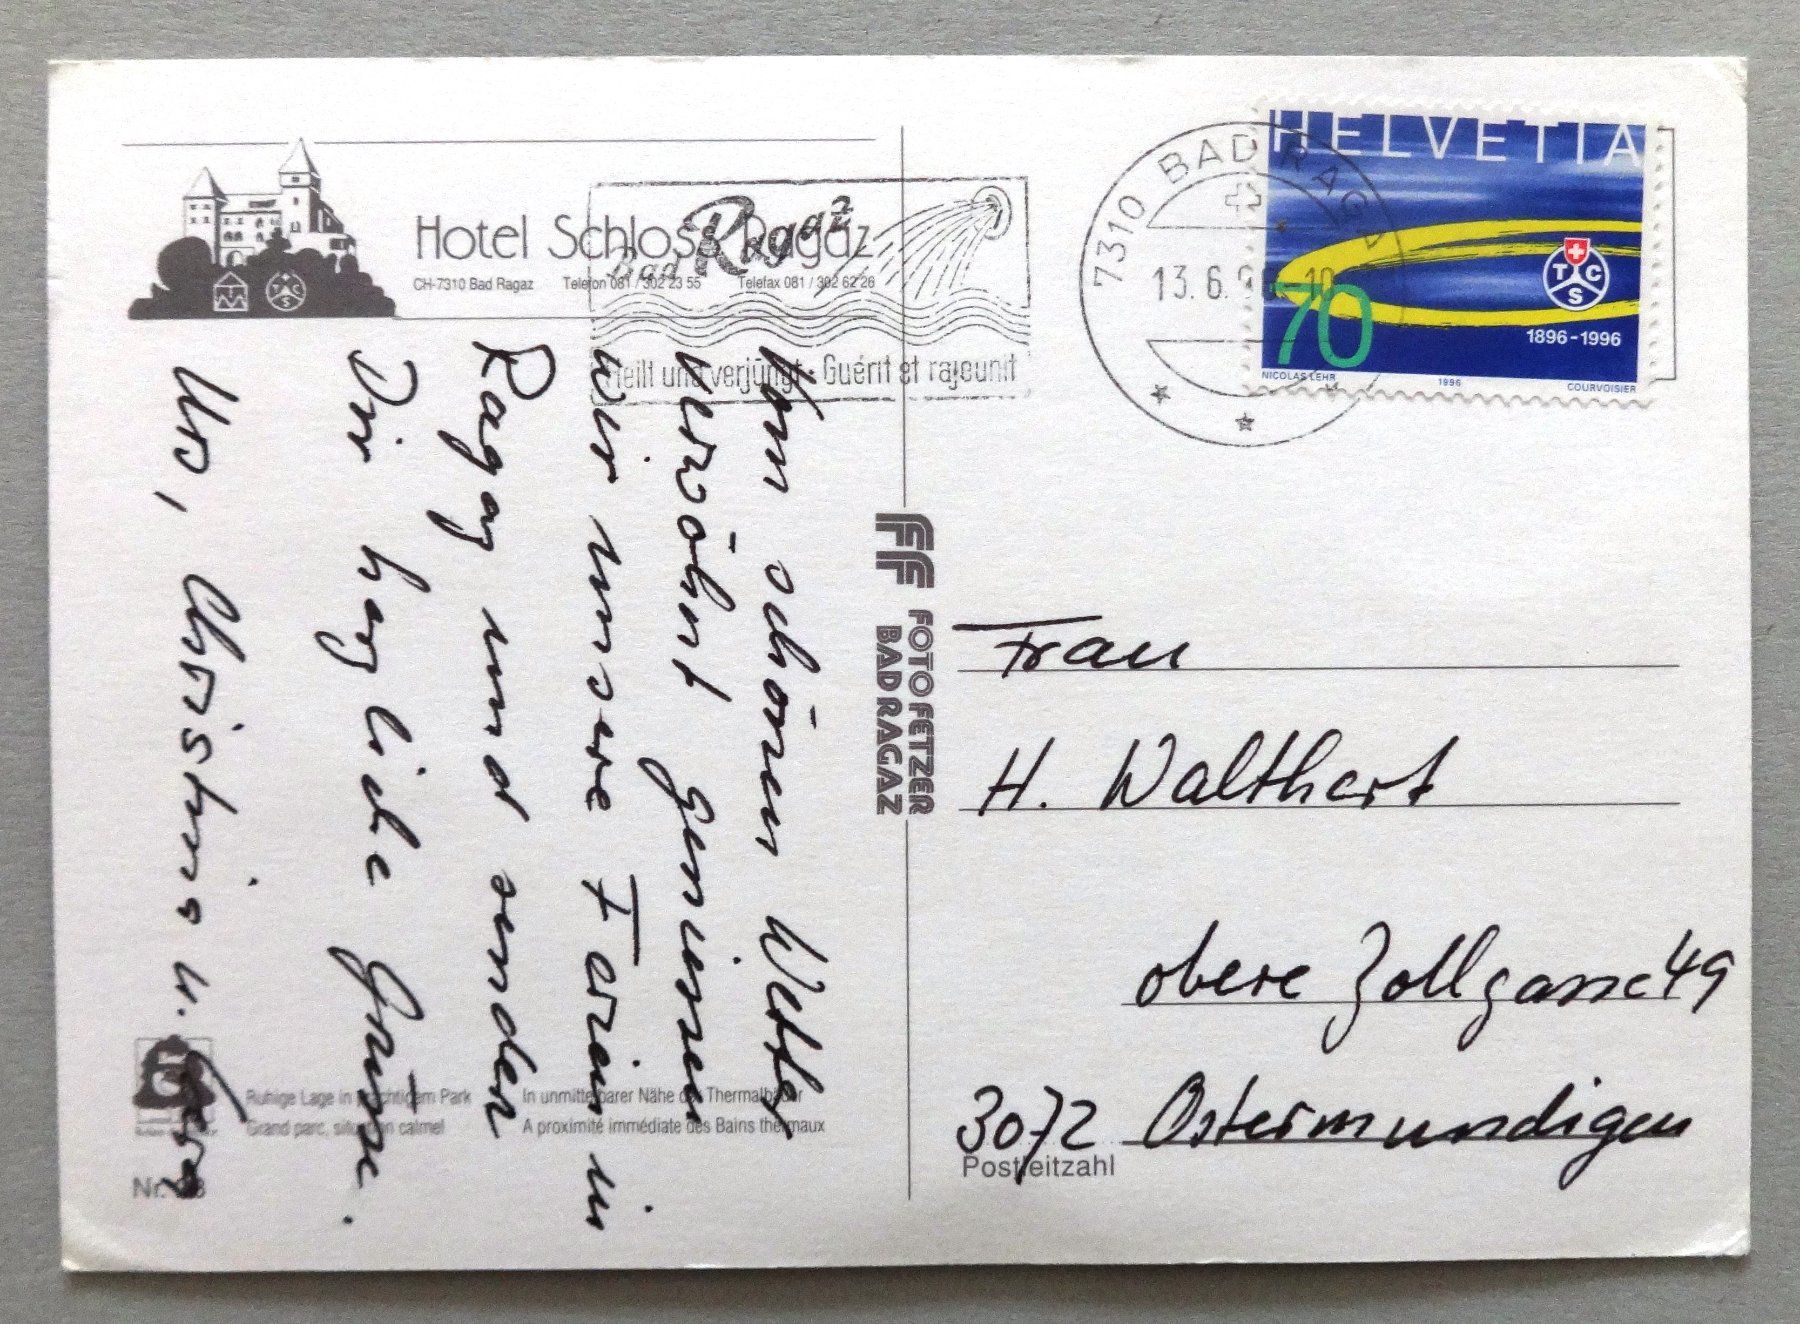 Hotel Schloss Ragaz
CH-7310 Bad Ragaz Telefon 081 / 302 23 55 Telefax 081 / 302 62 26
Bad Ragaz
Heilt und verjüngt · Guérit et rajeunit
7310 BAD RAGAZ
13.6.96-10
HELVETIA
TCS
70
1896-1996
NICOLAS LEHR 1996 COURVOISIER
Vom schönen Wetter
verwöhnt geniessen
wir unsere Ferien in
Ragaz und senden
Dir herzliche Grüsse.
Urs, Christina u.
FF FOTO FETZER
BAD RAGAZ
Frau
H. Walthert
obere Zollgasse 49
3072 Ostermundigen
Postleitzahl
Ruhige Lage in prächtigem Park In unmittelbarer Nähe der Thermalbäder
Grand parc, situation calme A proximité immédiate des Bains thermaux
Nr.